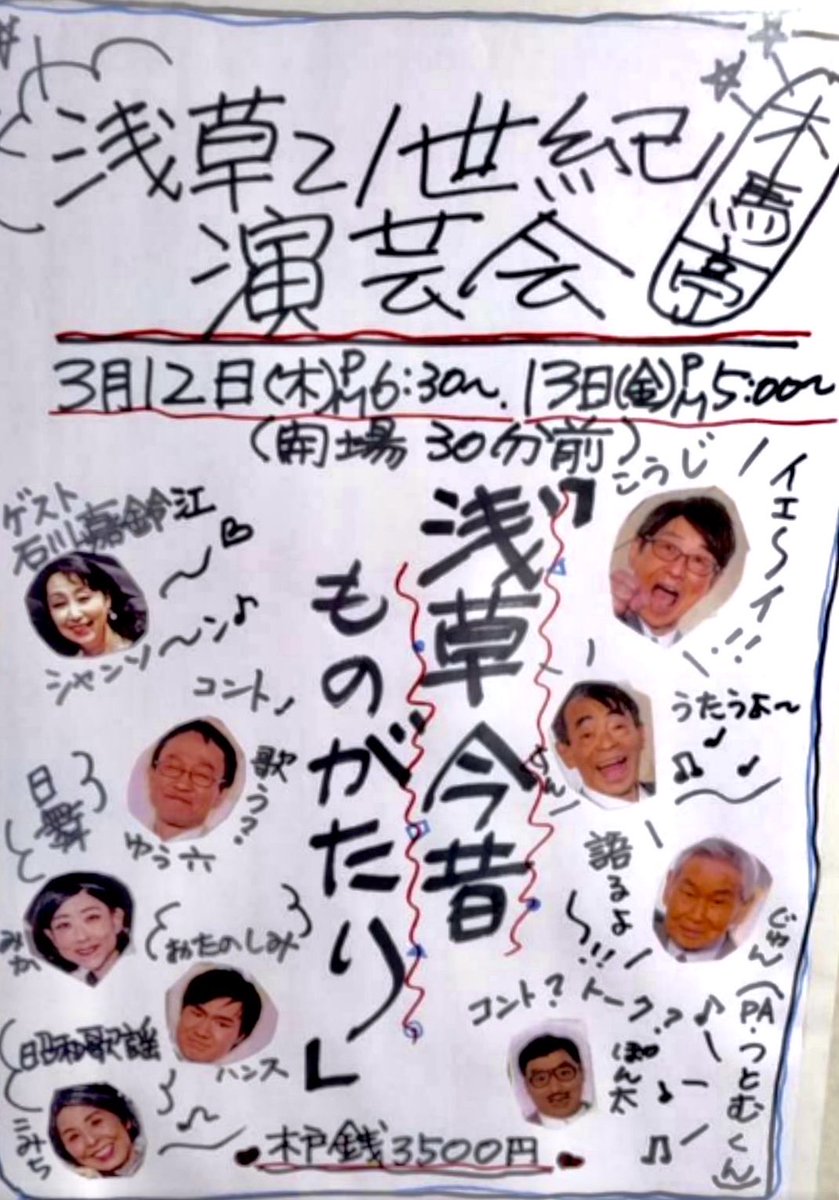 浅草21世紀
演芸会
木馬亭
3月12日(木)PM6:30〜.13日(金)PM5:00〜
(開場30分前)
『浅草今昔
ものがたり』
こうじ
イエ〜イ!!
うたうよ〜
語るよ〜!!
じゅん
コント?トーク?
ぽん太
(PA・つとむくん)
ゲスト
石川嘉鈴江
シャンソ〜ン♪
コント!
歌う?
ゆう六
日舞
みか
おたのしみ
ハンス
昭和歌謡
こみち
木戸銭3500円